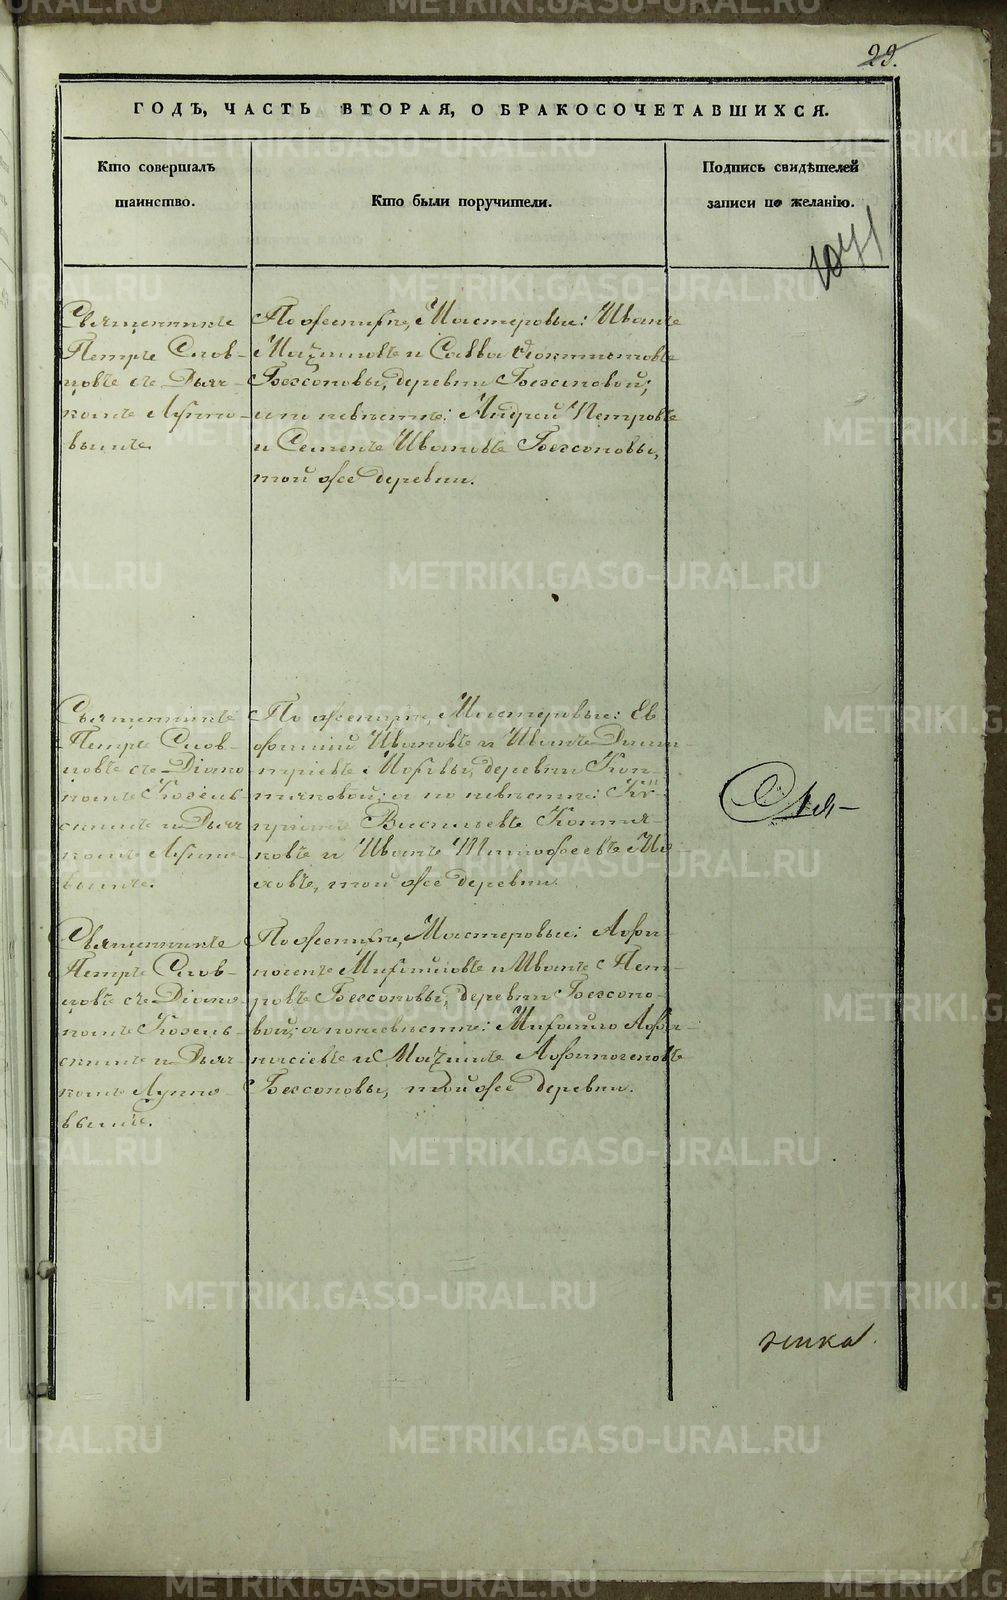 29.
ГОДЪ, ЧАСТЬ ВТОРАЯ, О БРАКОСОЧЕТАВШИХСЯ.
Кто совершалъ
таинство.
Кто были поручители.
Подпись свидѣтелей
записи по желанію.
1041
Священникъ
Петръ Слов-
цовъ съ Дьяч-
комъ Луппо-
вымъ.
По женихѣ, Мастеровые: Иванъ
Мазимовъ и Савва
Безсоновы, деревни Безсоновой;
а по невѣстѣ: Андрей Петровъ
и Семенъ Ивановъ Безсоновы,
той же деревни.
Священникъ
Петръ Слов-
цовъ съ Діако-
номъ Козель-
скимъ и Дьяч-
комъ Луппо-
вымъ.
По женихѣ, Мастеровые: Ев-
фимій Ивановъ и Иванъ Дими-
тріевъ деревни
а по невѣстѣ: Ки-
Васильевъ
и Иванъ Тимофеевъ
той же деревни.
Священникъ
Петръ Слов-
цовъ съ Діако-
номъ Козель-
скимъ и Дьяч-
комъ Луппо-
вымъ.
По женихѣ, Мастеровые: Афи-
ногенъ Михайловъ и Иванъ Пет-
ровъ Безсоновы, деревни Безсоно-
вой; а по невѣстѣ: Михайло Афа-
насіевъ и Мазимъ Афиногеновъ
Безсоновы, той же деревни.